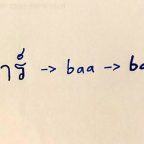 าร์ -> baa -> ba